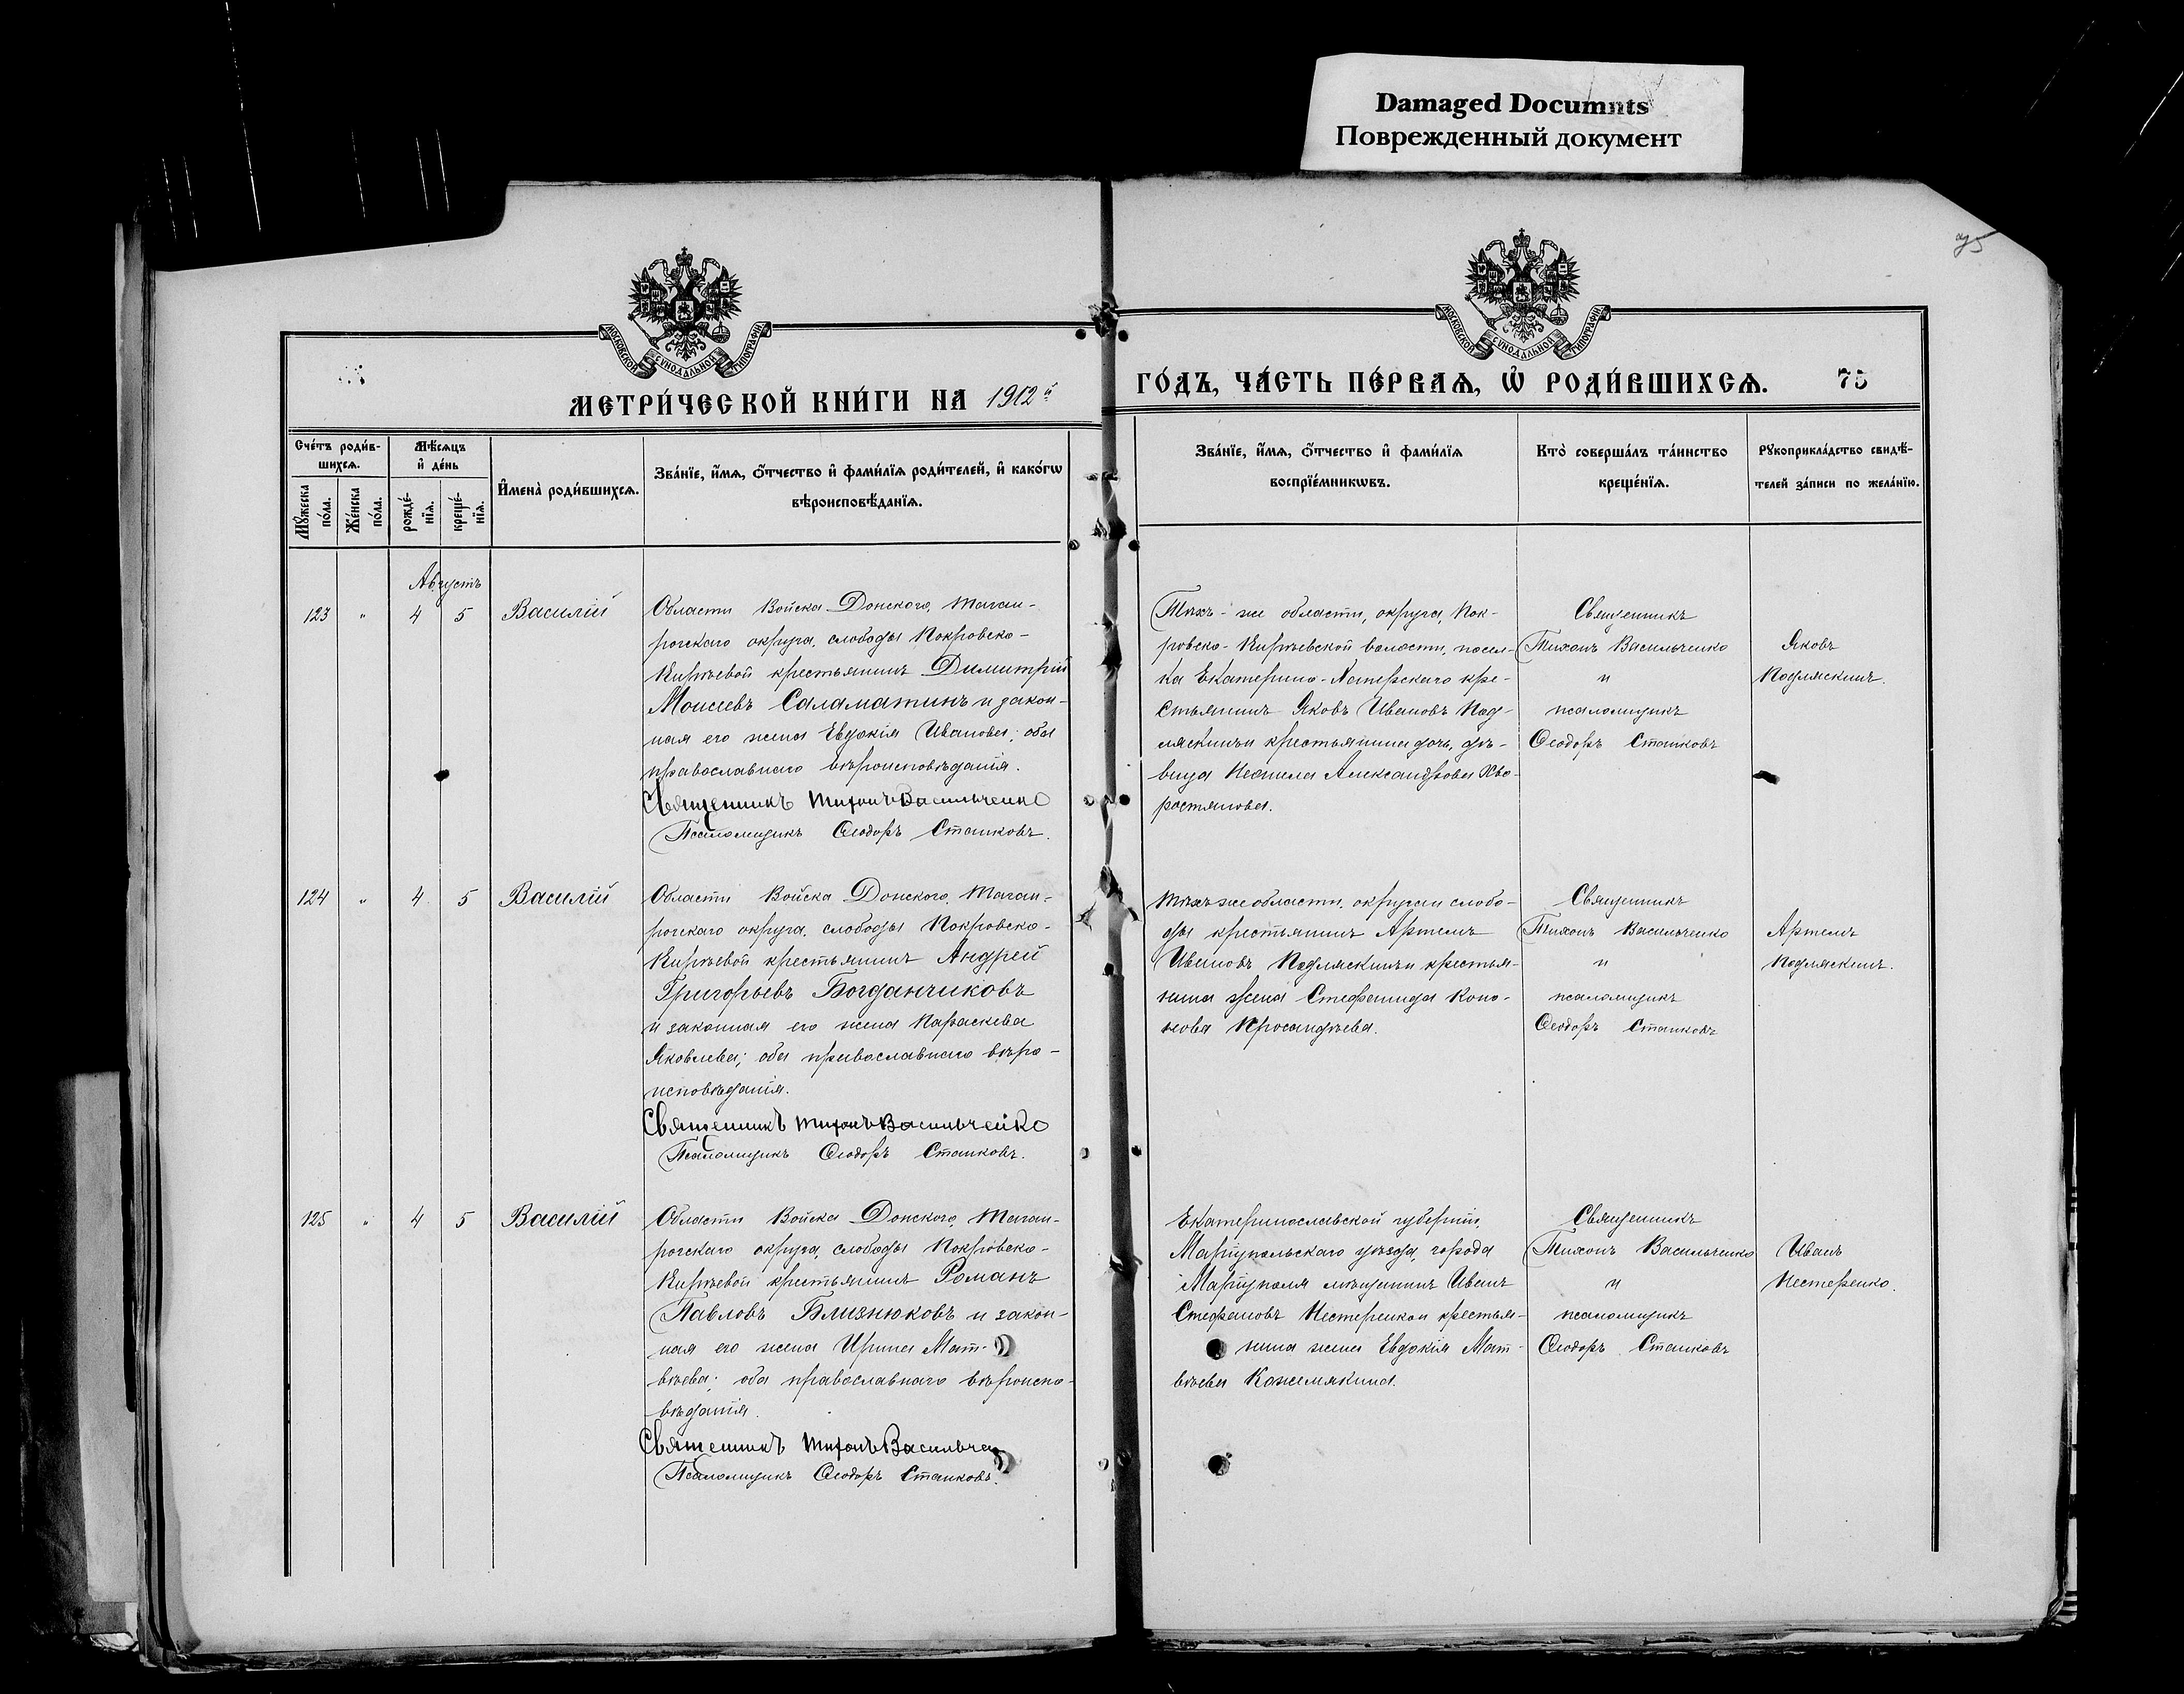 Damaged Documnts
Поврежденный документ
МОСКОВСКОЙ СѴНОДАЛЬНОЙ ТИПОГРАФІИ
МОСКОВСКОЙ СѴНОДАЛЬНОЙ ТИПОГРАФІИ
МЕТРИ́ЧЕСКОЙ КНИ́ГИ НА 1912й
ГО́ДЪ, ЧА́СТЬ ПЕ́РВАѦ, Ѽ РОДИ́ВШИХСѦ. 75
Сче́тъ роди́в-
шихсѧ.
Мѣ́сѧцъ
и҆ де́нь
Мꙋ́жеска
по́ла.
Же́нска
по́ла.
рожде́-
нїѧ.
креще́-
нїѧ.
И҆мена̀ роди́вшихсѧ.
Зва́нїе, и҆́мѧ, ѻ҆́тчество и҆ фами́лїѧ роди́телей, и҆ како́гѡ
вѣроисповѣ́данїѧ.
Зва́нїе, и҆́мѧ, ѻ҆́тчество и҆ фами́лїѧ
воспрїе́мникѡвъ.
Кто̀ соверша́лъ та́инство
креще́нїѧ.
Рꙋкоприкла́дство свидѣ́-
телей за́писи по жела́нїю.
Августъ
123 " 4 5 Василій
Области Войска Донского, Таган-
рогскаго округа, слободы Покровско-
Кирѣевой крестьянинъ Димитрій
Моисеевъ Саламатинъ и закон-
ная его жена Евдокія Иванова; оба
православнаго вѣроисповѣданія.
Священникъ Тихонъ Васильченко
Псаломщикъ Ѳеодоръ Станковъ.
Тѣхъ-же области, округа, Пок-
ровско-Кирѣевской волости, посел-
ка Екатерино-Хаперскаго кре-
стьянинъ Яковъ Ивановъ Под-
ляскинъ и крестьянина дочь, дѣ-
вица Неонила Александрова Хво-
ростянова.
Священникъ
Тихонъ Васильченко
и
псаломщикъ
Ѳеодоръ Станковъ
Яковъ
Подляскинъ.
124 " 4 5 Василій
Области Войска Донского, Таган-
рогскаго округа, слободы Покровско-
Кирѣевой крестьянинъ Андрей
Григорьевъ Богданчиковъ
и законная его жена Параскева
Яковлева; оба православнаго вѣро-
исповѣданія.
Священникъ Тихонъ Васильченко
Псаломщикъ Ѳеодоръ Станковъ.
Тѣхъ же области, округа и слобо-
ды крестьянинъ Артемъ
Ивановъ Подляскинъ и крестья-
нина жена Стефанида Коно-
нова Просандѣева.
Священникъ
Тихонъ Васильченко
и
псаломщикъ
Ѳеодоръ Станковъ
Артемъ
Подляскинъ.
125 " 4 5 Василій
Области Войска Донского, Таган-
рогскаго округа, слободы Покровско-
Кирѣевой крестьянинъ Романъ
Павловъ Близнюковъ и закон-
ная его жена Ирина Мат-
вѣева; оба православнаго вѣроиспо-
вѣданія.
Священникъ Тихонъ Васильчен
Псаломщикъ Ѳеодоръ Станковъ.
Екатеринославской губерніи,
Маріупольскаго уѣзда, города
Маріуполя мѣщанинъ Иванъ
Стефановъ Нестеренко и крестья-
нина жена Евдокія Мат-
вѣева Кожемякина.
Священникъ
Тихонъ Васильченко
и
псаломщикъ
Ѳеодоръ Станковъ
Иванъ
Нестеренко.